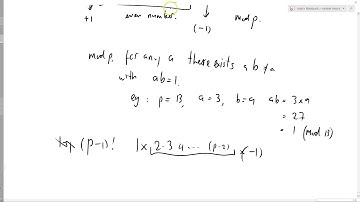 +1 even number. ↓ mod p.
(-1)
mod p. for any a there exists ab ≠ a
with ab=1.
eg: p = 13, a = 3, b = 9 ab = 3×9
= 27
= 1 (mod 13)
(p-1)! 1×2·3 4 ... (p-2) × (-1)